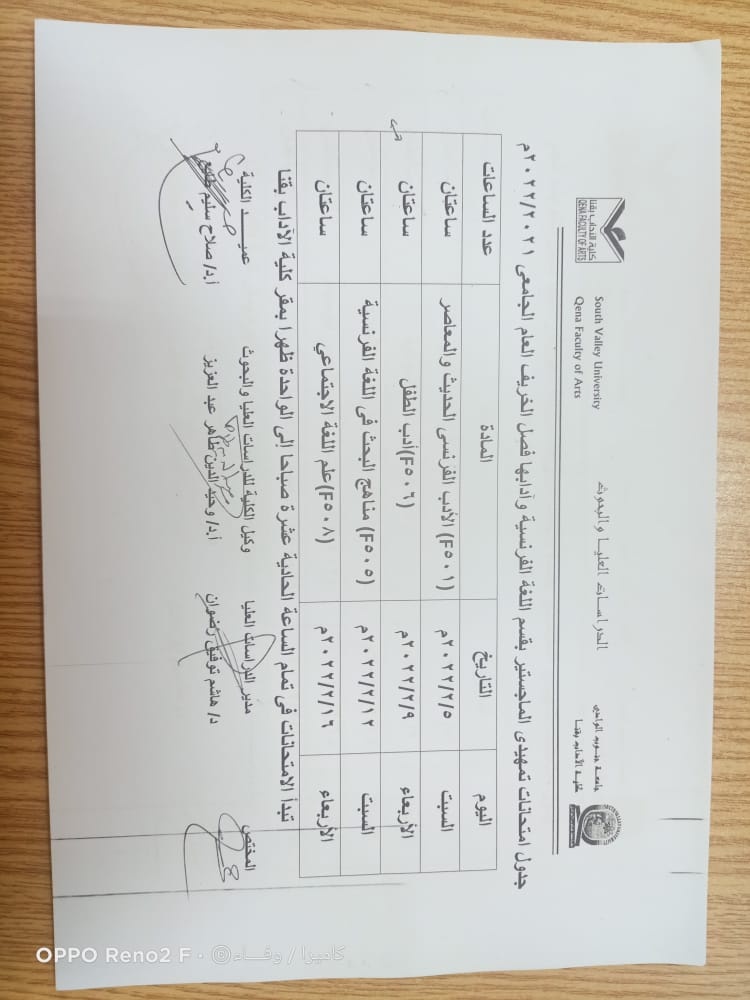 جامعة جنوب الوادي
كلية الآداب بقنا
الدراسات العليا والبحوث
South Valley University
Qena Faculty of Arts
كلية الآداب بقنا
QENA FACULTY OF ARTS
جدول امتحانات تمهيدى الماجستير بقسم اللغة الفرنسية وآدابها فصل الخريف العام الجامعى ٢٠٢٢/٢٠٢١م
اليوم التاريخ المادة عدد الساعات
السبت ٢٠٢٢/٢/٥م (F٥٠١) الأدب الفرنسى الحديث والمعاصر ساعتان
الأربعاء ٢٠٢٢/٢/٩م (F٥٠٦)أدب الطفل ساعتان
السبت ٢٠٢٢/٢/١٢م (F٥٠٥) مناهج البحث فى اللغة الفرنسية ساعتان
الأربعاء ٢٠٢٢/٢/١٦م (F٥٠٨)علم اللغة الاجتماعي ساعتان
تبدأ الامتحانات فى تمام الساعة الحادية عشرة صباحا إلى الواحدة ظهرا بمقر كلية الآداب بقنا
المختص مدير الدراسات العليا وكيل الكلية للدراسات العليا والبحوث عميد الكلية
د/ هاشم توفيق رضوان أ.د/ وحيد الدين طاهر عبد العزيز أ.د/ صلاح سليم طايع
OPPO Reno2 F · ©كاميرا / وفاء